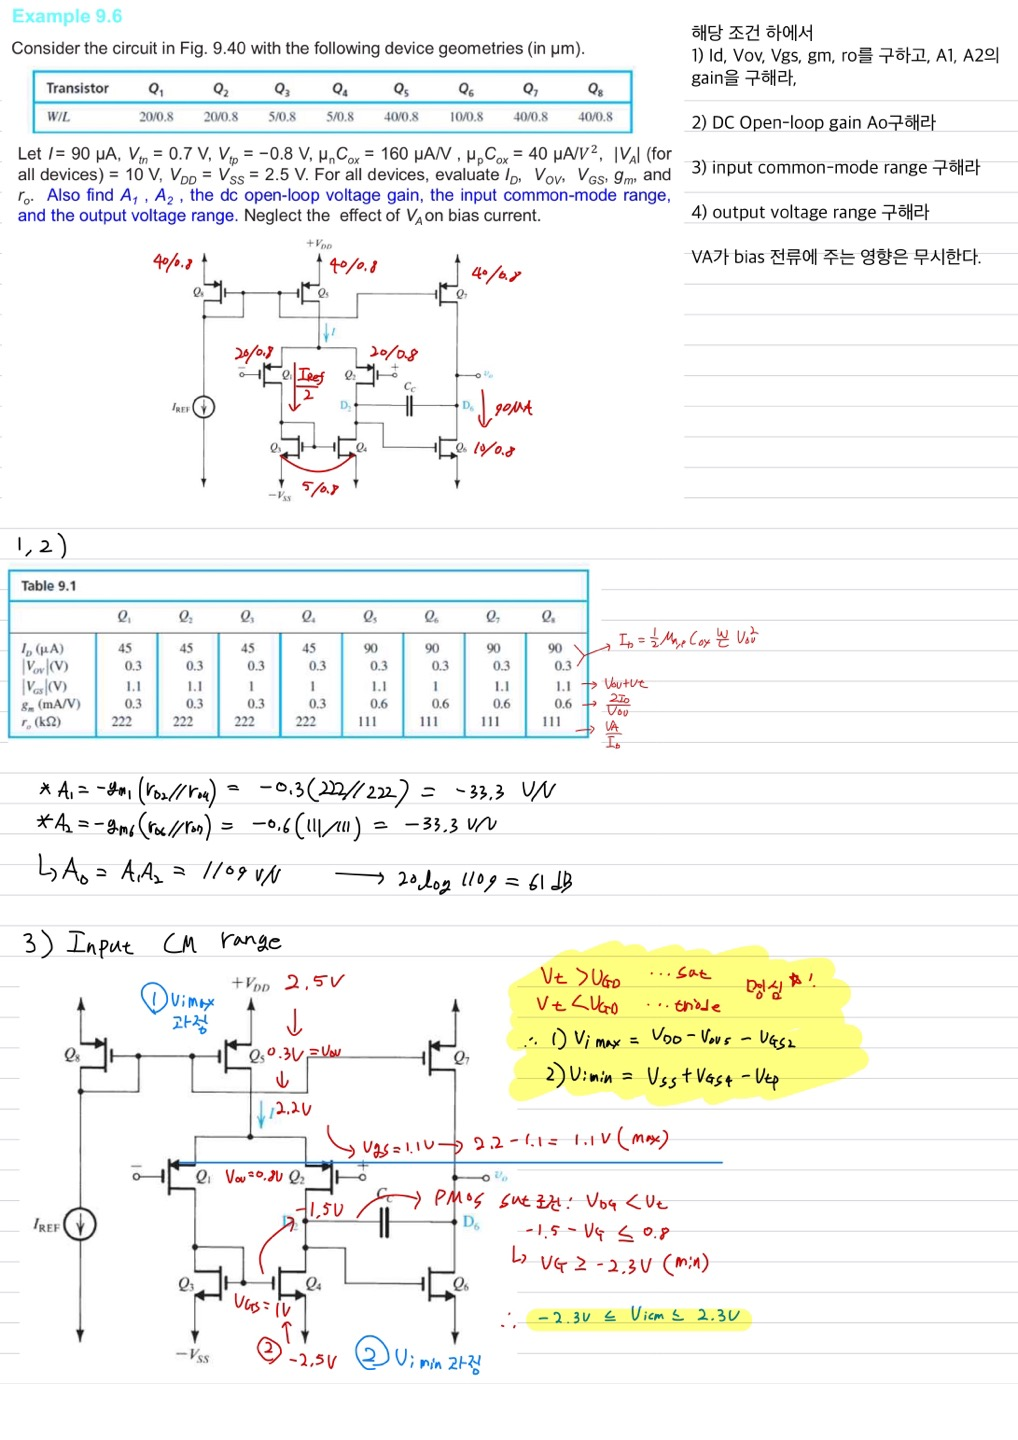 Example 9.6
Consider the circuit in Fig. 9.40 with the following device geometries (in µm).
Transistor Q₁ Q₂ Q₃ Q₄ Q₅ Q₆ Q₇ Q₈
W/L 20/0.8 20/0.8 5/0.8 5/0.8 40/0.8 10/0.8 40/0.8 40/0.8
Let I = 90 µA, Vtn = 0.7 V, Vtp = −0.8 V, µnCox = 160 µA/V , µpCox = 40 µA/V², |VA| (for
all devices) = 10 V, VDD = VSS = 2.5 V. For all devices, evaluate ID, VOV, VGS, gm, and
ro. Also find A1 , A2 , the dc open-loop voltage gain, the input common-mode range,
and the output voltage range. Neglect the effect of VA on bias current.
해당 조건 하에서
1) Id, Vov, Vgs, gm, ro를 구하고, A1, A2의
gain을 구해라,
2) DC Open-loop gain Ao구해라
3) input common-mode range 구해라
4) output voltage range 구해라
VA가 bias 전류에 주는 영향은 무시한다.
+VDD
40/0.8 40/0.8 40/0.8
Q₈ Q₅ Q₇
I
20/0.8 20/0.8
Q₁ Iref/2 Q₂ vo
CC
IREF D₂ D₆ 90µA
Q₃ Q₄ Q₆ 10/0.8
−VSS 5/0.8
1, 2)
Table 9.1
Q₁ Q₂ Q₃ Q₄ Q₅ Q₆ Q₇ Q₈
ID (µA) 45 45 45 45 90 90 90 90
|VOV|(V) 0.3 0.3 0.3 0.3 0.3 0.3 0.3 0.3
|VGS|(V) 1.1 1.1 1 1 1.1 1 1.1 1.1
gm (mA/V) 0.3 0.3 0.3 0.3 0.6 0.6 0.6 0.6
ro (kΩ) 222 222 222 222 111 111 111 111
→ ID = 1/2 µn,p Cox W/L Vov²
→ Vov+Vt
→ 2ID/Vov
→ VA/ID
* A1 = -gm1 (ro2//ro4) = -0.3(222//222) = -33.3 V/V
* A2 = -gm6 (ro6//ro7) = -0.6(111//111) = -33.3 V/V
↳ A0 = A1A2 = 1109 V/V → 20log 1109 = 61 dB
3) Input CM range
Vt > VGD ... sat 명심 ★!
Vt < VGD ... triode
∴ 1) Vimax = VDD - Vov5 - VGS2
2) Vimin = VSS + VGS4 - Vtp
① Vimax 과정
+VDD 2.5V
Q₈ Q₅ 0.3V = Vov Q₇
I 2.2V
Vgs = 1.1V → 2.2 - 1.1 = 1.1V (max)
Q₁ Vov=0.8V Q₂ vo
-1.5V CC → PMOS sat 조건: VDG < Vt
IREF D₂ D₆
-1.5 - VG ≤ 0.8
↳ VG ≥ -2.3V (min)
Q₃ Q₄ Q₆
VGS = 1V
∴ -2.3V ≤ Vicm ≤ 2.3V
−VSS ② -2.5V ② Vimin 과정